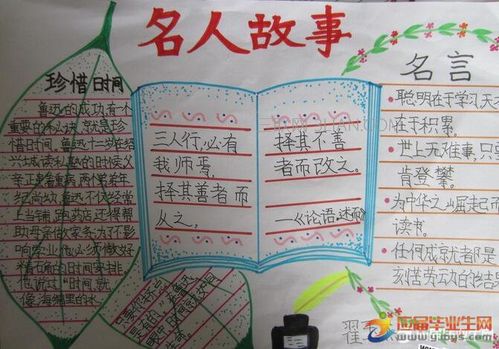 名人故事
珍惜时间
鲁迅的成功,有个
重要的秘诀,就是珍
惜时间。鲁迅十二岁在绍
兴城读私塾的时候,父
亲正患着重病,两个弟弟年
纪尚幼,鲁迅不仅经常
上当铺,跑药店,还得帮
助母亲做家务;为不影
响学业,他必须做好
精确的时间安排。
他说过:"时间,就
像海绵里的水,
三人行,必有
我师焉,
择其善者而
从之,
择其不善
者而改之。
—《论语·述而》
名言
聪明在于学习,天
在于积累。
世上无难事,只
肯登攀。
为中华之崛起而
读书。
任何成就者都是
刻苦劳动的
翟
应届毕业生网
www.yjbys.com